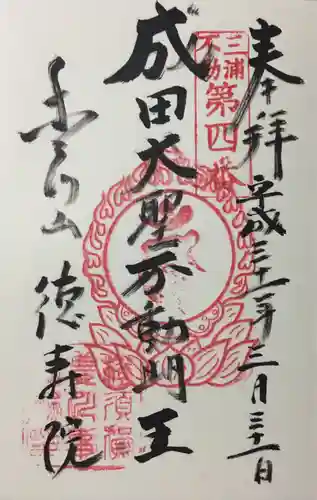 奉拝
平成三十一年三月三十一日
三浦
不動
第四
成田大聖不動明王
徳寿院